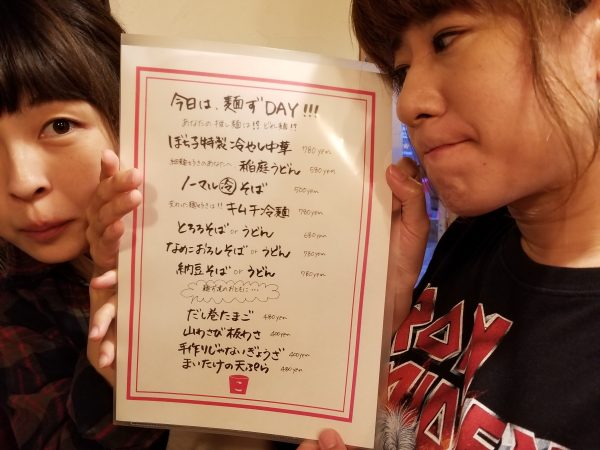 今日は、麺ずDAY!!!
あなたの推し麺は!? どれ麺!?
ぼくる子特製 冷やし中華 780yen
細麺好きのあなたへ 稲庭うどん 580yen
ノーマル冷そば 500yen
変わった麺好きは!! キムチ冷麺 780yen
とろろそば or うどん 680yen
なめこおろしそば or うどん 780yen
納豆そば or うどん 780yen
麺が先のおともに…
だし巻たまご 480yen
山わさび板わさ 400yen
手作りじゃないぎょうざ 400yen
まいたけの天ぷら 480yen
こ